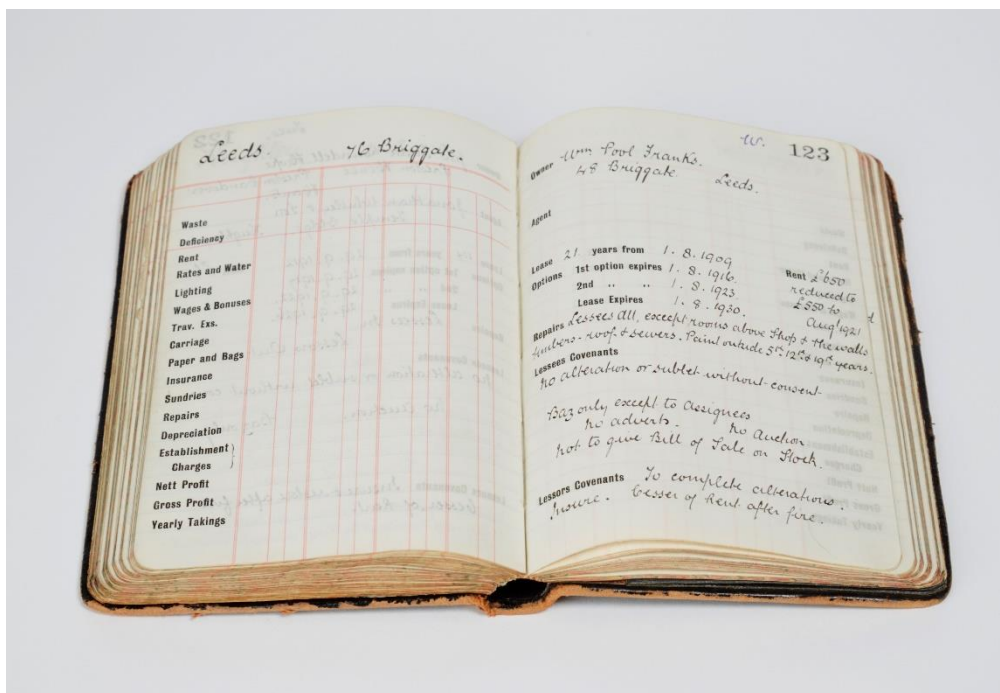 Leeds. 76 Briggate.
Waste
Deficiency
Rent
Rates and Water
Lighting
Wages & Bonuses
Trav. Exs.
Carriage
Paper and Bags
Insurance
Sundries
Repairs
Depreciation
Establishment
Charges
Nett Profit
Gross Profit
Yearly Takings
W. 123
Owner Wm Pool Franks.
48 Briggate Leeds.
Agent
Lease 21 years from 1.8.1909
Options 1st option expires 1.8.1916. Rent £650
2nd " " 1.8.1923. reduced to
Lease Expires 1.8.1930. £550 to
Aug 1921
Repairs Lessees All, except rooms above Shop & the walls
timbers-roof & sewers. Paint outside 5th 12th & 19th years.
Lessees Covenants
No alteration or sublet without consent
Baz only except to assignees
no adverts. No Auction
not to give Bill of Sale on Stock.
Lessors Covenants To complete alterations.
Insure. Cesser of Rent after fire.